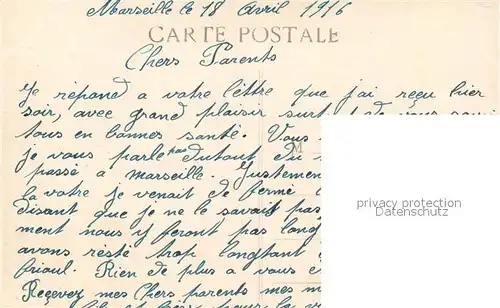 Marseille le 18 Avril 1916
CARTE POSTALE
Chers Parents
Je répond a votre lettre que j'ai reçu hier
soir, avec grand plaisir surtout de vous
tous en bonnes santé. Vous
je vous parle pas du tout du
passé a marseille. Justement
la votre je venait de fermé
disant que je ne le savait pas
ment nous y feront pas
avons resté trop longtant
frioul. Rien de plus a vous
Recevez mes Chers parents mes
privacy protection
Datenschutz